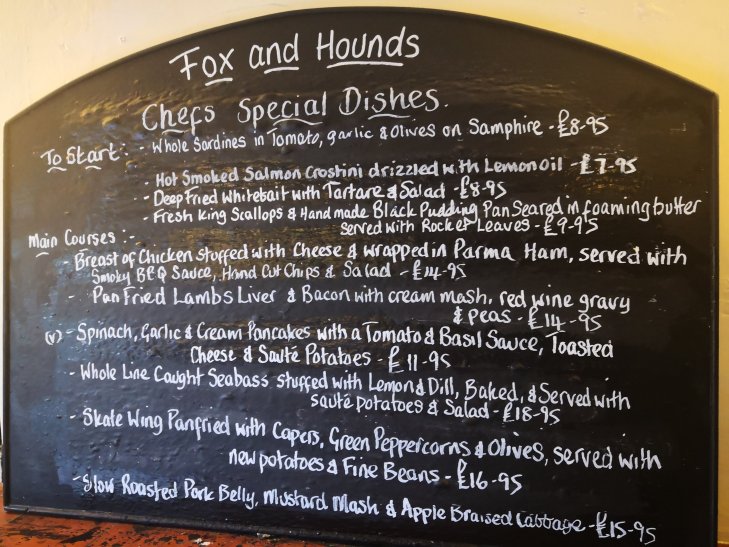 Fox and Hounds
Chefs Special Dishes.
To Start: - Whole Sardines in Tomato, garlic & Olives on Samphire - £8-95
- Hot Smoked Salmon Crostini drizzled with Lemon Oil - £7-95
- Deep Fried Whitebait with Tartare & Salad - £8-95
- Fresh King Scallops & Handmade Black Pudding Pan Seared in foaming butter
served with Rocket Leaves - £9-95
Main Courses: -
- Breast of Chicken Stuffed with Cheese & wrapped in Parma Ham, served with
Smoky BBQ Sauce, Hand Cut Chips & Salad - £14-95
- Pan Fried Lambs Liver & Bacon with cream mash, red wine gravy
& peas - £14-95
(v) - Spinach, Garlic & Cream Pancakes with a Tomato & Basil Sauce, Toasted
Cheese & Sauté Potatoes - £11-95
- Whole Line Caught Seabass stuffed with Lemon & Dill, Baked, & Served with
sauté potatoes & Salad - £18-95
- Skate Wing Panfried with Capers, Green Peppercorns & Olives, served with
new potatoes & Fine Beans - £16-95
- Slow Roasted Pork Belly, Mustard Mash & Apple Braised Cabbage - £15-95